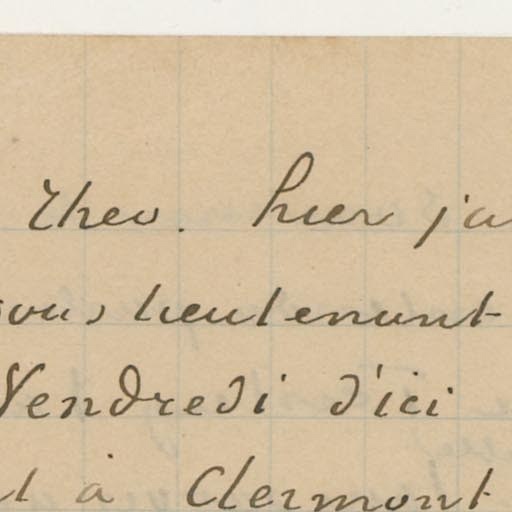 Theo. hier j'a
sous lieutenant
Vendredi d'ici
à Clermont